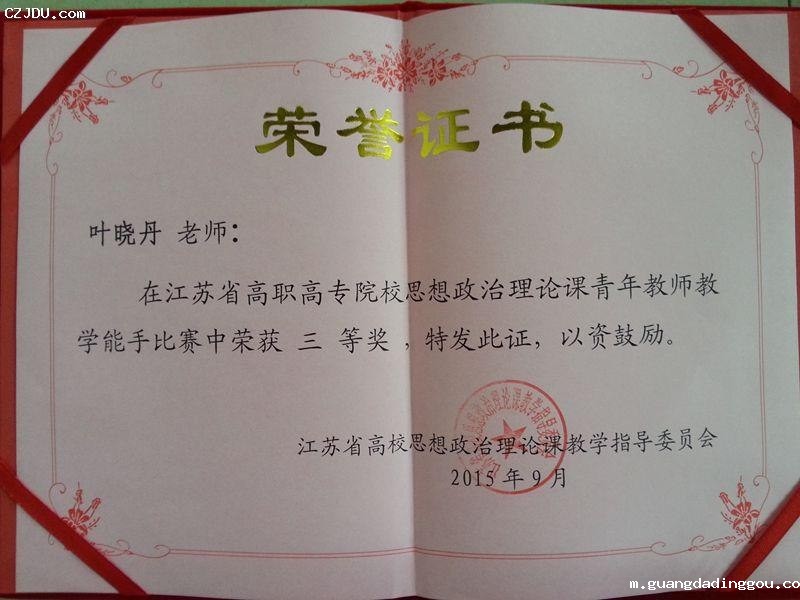 CZJDU.com
荣誉证书
叶晓丹 老师：
在江苏省高职高专院校思想政治理论课青年教师教
学能手比赛中荣获 三 等奖 ，特发此证，以资鼓励。
江苏省高校思想政治理论课教学指导委员会
2015 年 9 月
m.guangdadinggou.co